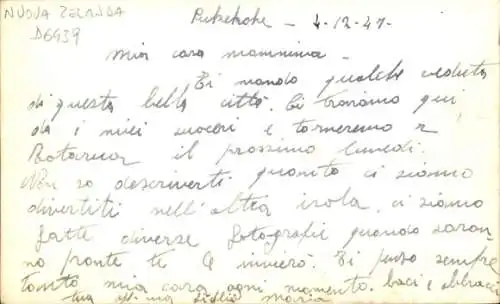 NUOVA ZELANDA
D6939
Pukekohe - 4-12-47-
Mia cara mammina -
Ti mando qualche veduta
di questa bella città. Ci troviamo qui
da i miei suoceri e torneremo a
Rotorua il prossimo lunedi.
Non so descriverti quanto ci siamo
divertiti nell'altra isola, ci siamo
fatte diverse fotografie quando saran-
no pronte te le invierò. Ti penso sempre
tanto mia cara ogni momento. baci e abbracci
tua figlia Maria